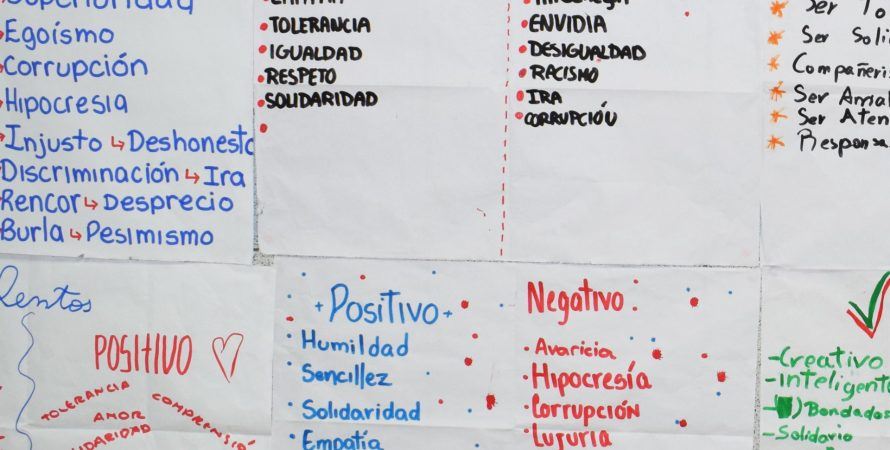 Superioridad
Egoísmo
Corrupción
Hipocresia
Injusto ↳ Deshonesto
Discriminación ↳ Ira
Rencor ↳ Desprecio
Burla ↳ Pesimismo
TOLERANCIA
IGUALDAD
RESPETO
SOLIDARIDAD
ENVIDIA
DESIGUALDAD
RACISMO
IRA
CORRUPCIÓN
Ser To
Ser Soli
Compañeris
Ser Amab
Ser Aten
Responsa
lentos
POSITIVO
TOLERANCIA
AMOR
COMPRENSIÓ
IDARIDAD
+Positivo+
Humildad
Sencillez
Solidaridad
Empatía
Negativo:
Avaricia
Hipocresía
Corrupción
Lujuria
-Creativo
-inteligente
Bondados
-Solidario